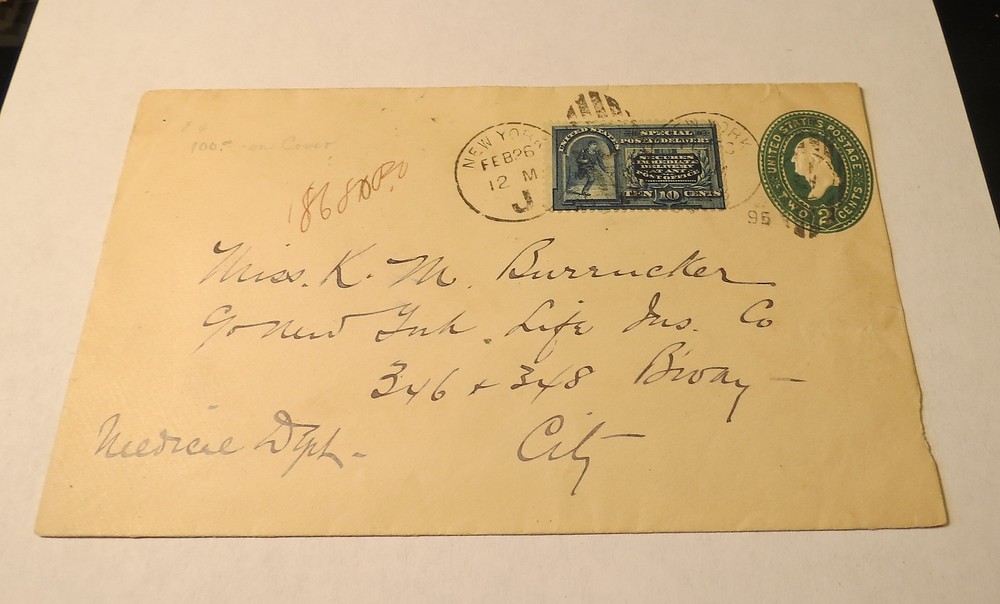 100.- on Cover
NEW YORK
FEB 26
12 M
J
95
UNITED STATES
SPECIAL
POSTAL DELIVERY
SECURES
IMMEDIATE
DELIVERY
AT ANY
POST OFFICE
TEN 10 CENTS
UNITED STATES POSTAGE
TWO 2 CENTS
Miss. K. M. Burrucker
c/o New York Life Ins. Co
346 + 348 Bway -
City
Medical Dpt.